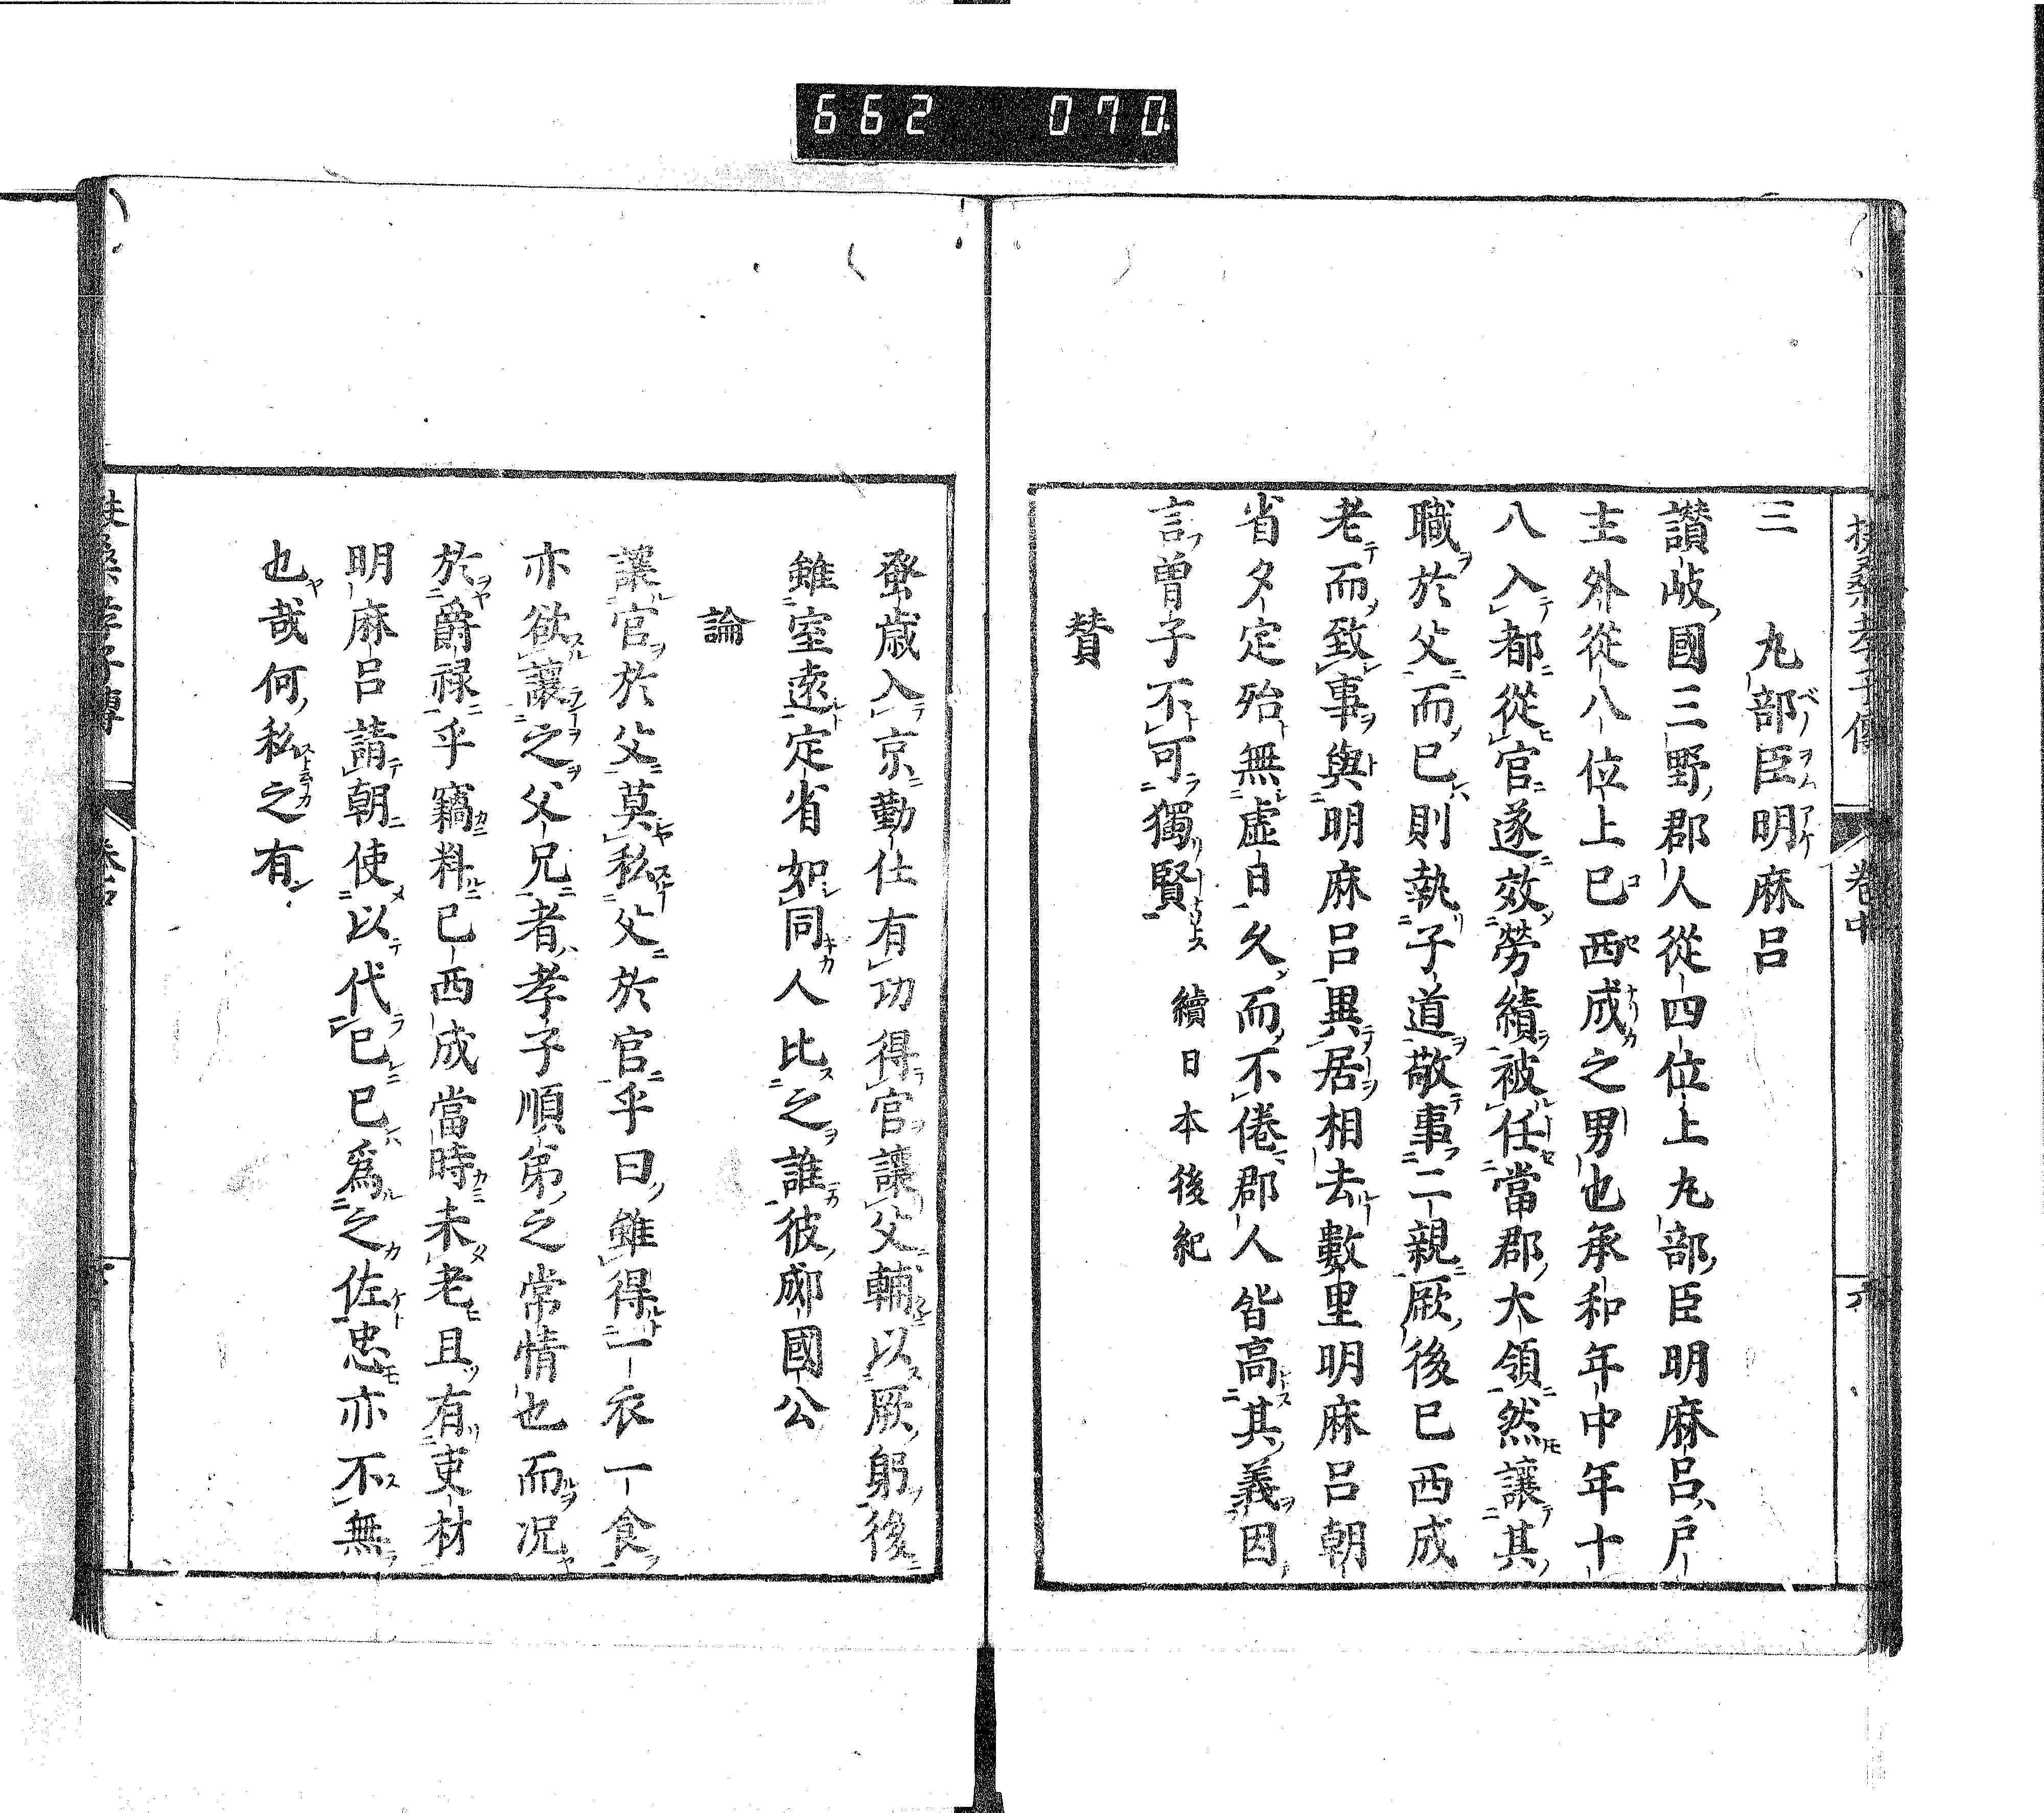 662 070
扶桑孝子傳 卷中 六
三 丸部臣明麻呂
讃岐國三野郡人從四位上丸部臣明麻呂戸
主外從八位上己西成之男也承和年中年十
八入都從官遂效勞績被任當郡大領然讓其
職於父而已則執子道敬事二親厥後己西成
老而致事與明麻呂異居相去數里明麻呂朝
省夕定殆無虚日久而不倦郡人皆高其義因
言曽子不可獨賢 續日本後紀
賛
發歳入京勤仕有功得官讓父輔以厥躬後
雖室遠定省如同人比之誰彼郕國公
論
讓官於父莫私父於官乎曰雖得一衣一食
亦欲讓之父兄者孝子順弟之常情也而况
於爵禄乎竊料己西成當時未老且有吏材
明麻呂請朝使以代己已爲之佐忠亦不無
也哉何私之有
扶桑孝子傳 卷中